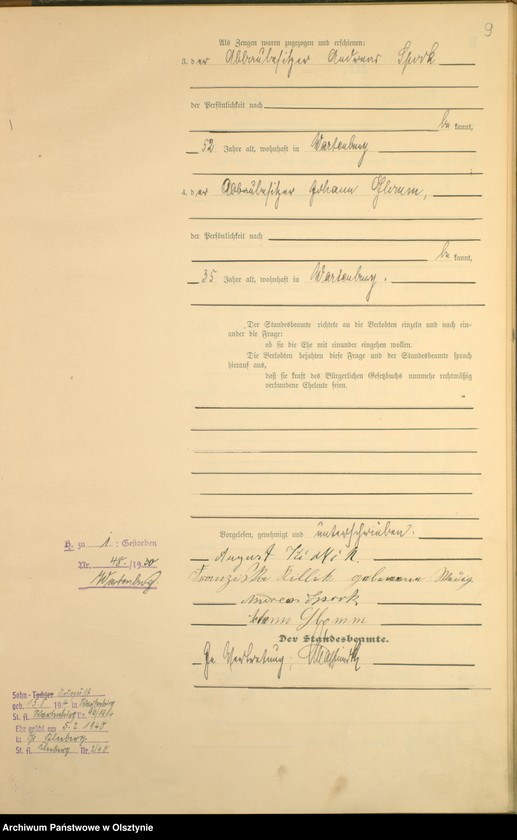 9
Als Zeugen waren zugezogen und erschienen:
3. der Abbaubesitzer Andreas Spork
der Persönlichkeit nach
be kannt,
52 Jahre alt, wohnhaft in Wartenburg
4. der Abbaubesitzer Johann
der Persönlichkeit nach
be kannt,
35 Jahre alt, wohnhaft in Wartenburg.
Der Standesbeamte richtete an die Verlobten einzeln und nach ein-
ander die Frage:
ob sie die Ehe mit einander eingehen wollen.
Die Verlobten bejahten diese Frage und der Standesbeamte sprach
hierauf aus,
daß sie kraft des Bürgerlichen Gesetzbuchs nunmehr rechtmäßig
verbundene Eheleute seien.
Vorgelesen, genehmigt und unterschrieben.
August
Franziska geborene
Andreas Spork
Johann
Der Standesbeamte.
In Vertretung:
B. zu 1.: Gestorben
Nr. 48./19
Wartenburg
Sohn-Tochter August
geb. in Wartenburg
St. A. Wartenburg Nr.
Ehe geschl. am 5.2.1940
in
St. A. Nr.
Archiwum Państwowe w Olsztynie